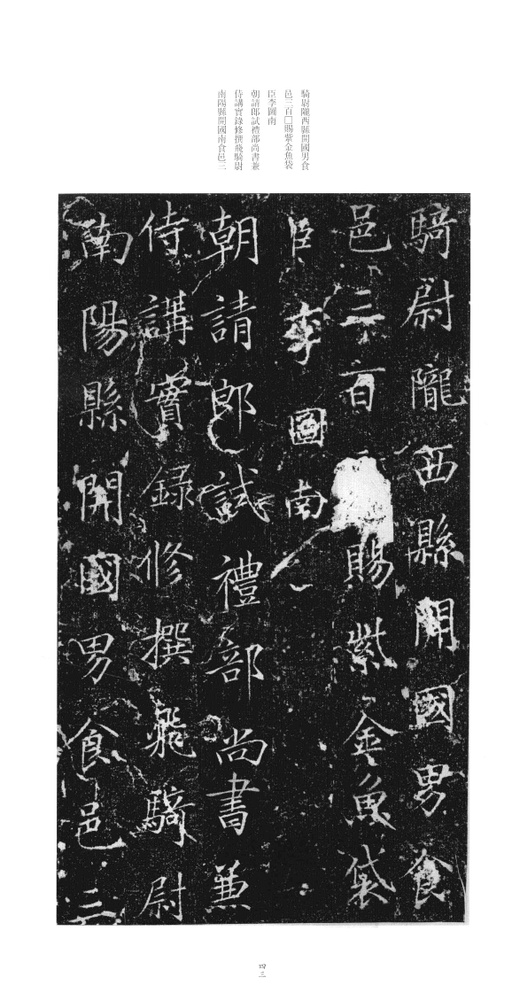 騎尉隴西縣開國男食
邑三百□賜紫金魚袋
臣李圖南
朝請郎試禮部尚書兼
侍講實錄修撰飛騎尉
南陽縣開國南食邑三
騎尉隴西縣開國男食
邑三百賜紫金魚袋
臣李圖南
朝請郎試禮部尚書兼
侍講實錄修撰飛騎尉
南陽縣開國男食邑三
四三